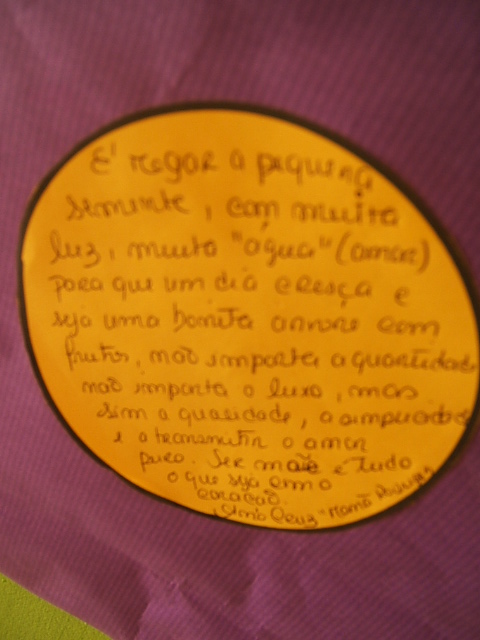 É regar a pequena
semente, com muita
luz, muita "água" (amor)
para que um dia cresça e
seja uma bonita árvore com
frutos, não importa a quantidade
não importa o luxo, mas
sim a qualidade, a simplicidade
e o transmitir o amor
puro. Ser mãe é tudo
o que seja amo
coração.
Cruz "Mamã